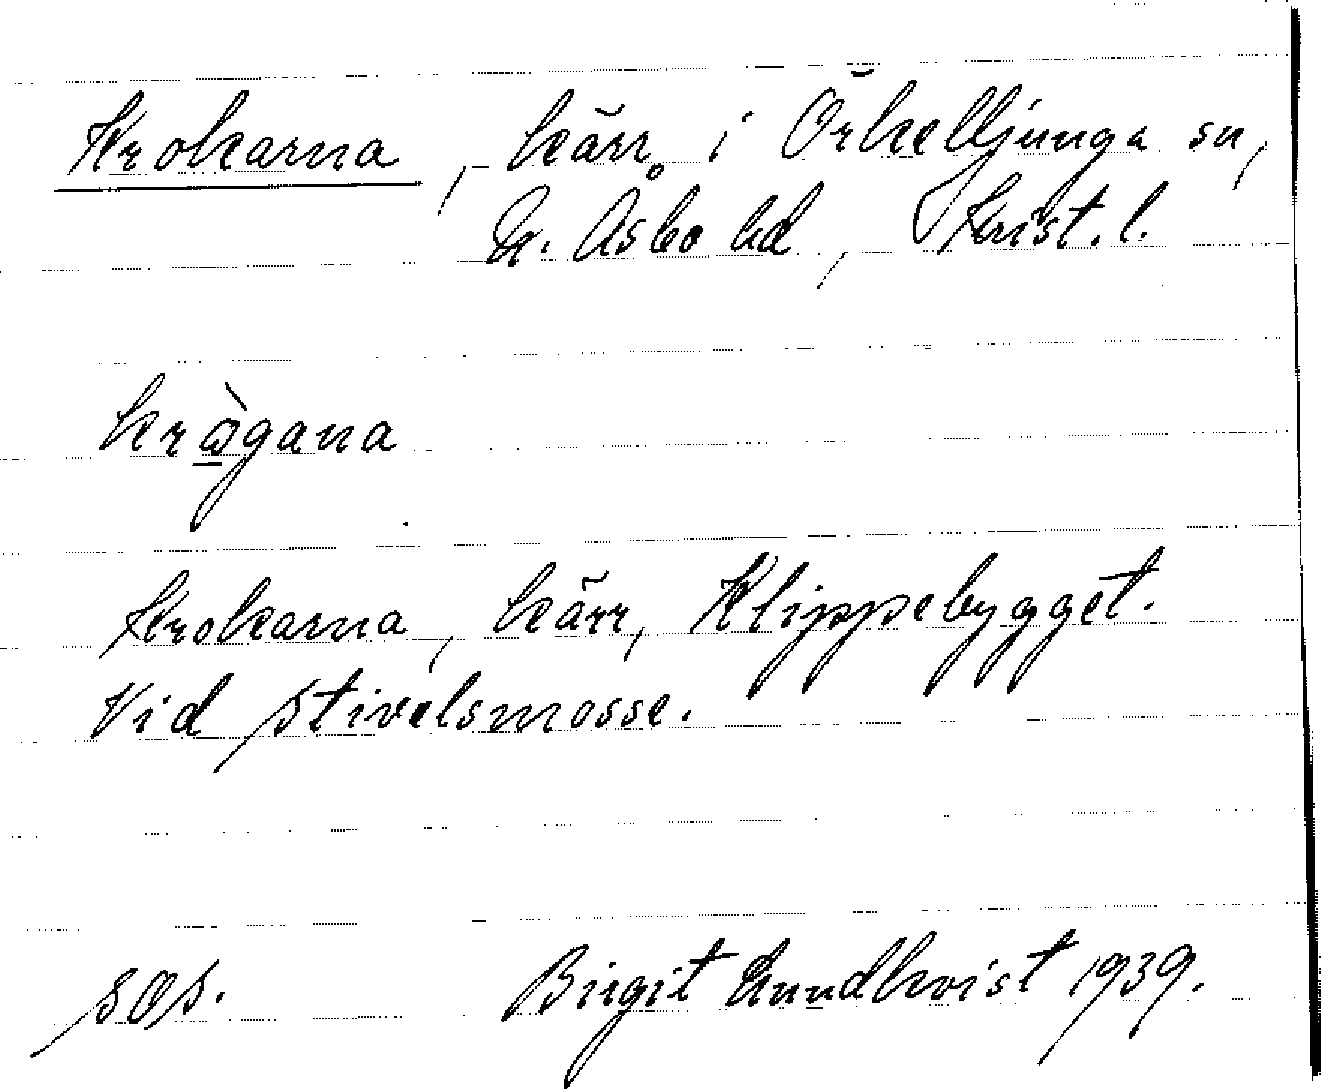 Krokarna, kärr i Örkelljunga sn,
N. Åsbo hd, Krist. l.
krògana
Krokarna, kärr, Klippebygget.
Vid Stivelsmosse.
SOS. Birgit Lundkvist 1939.